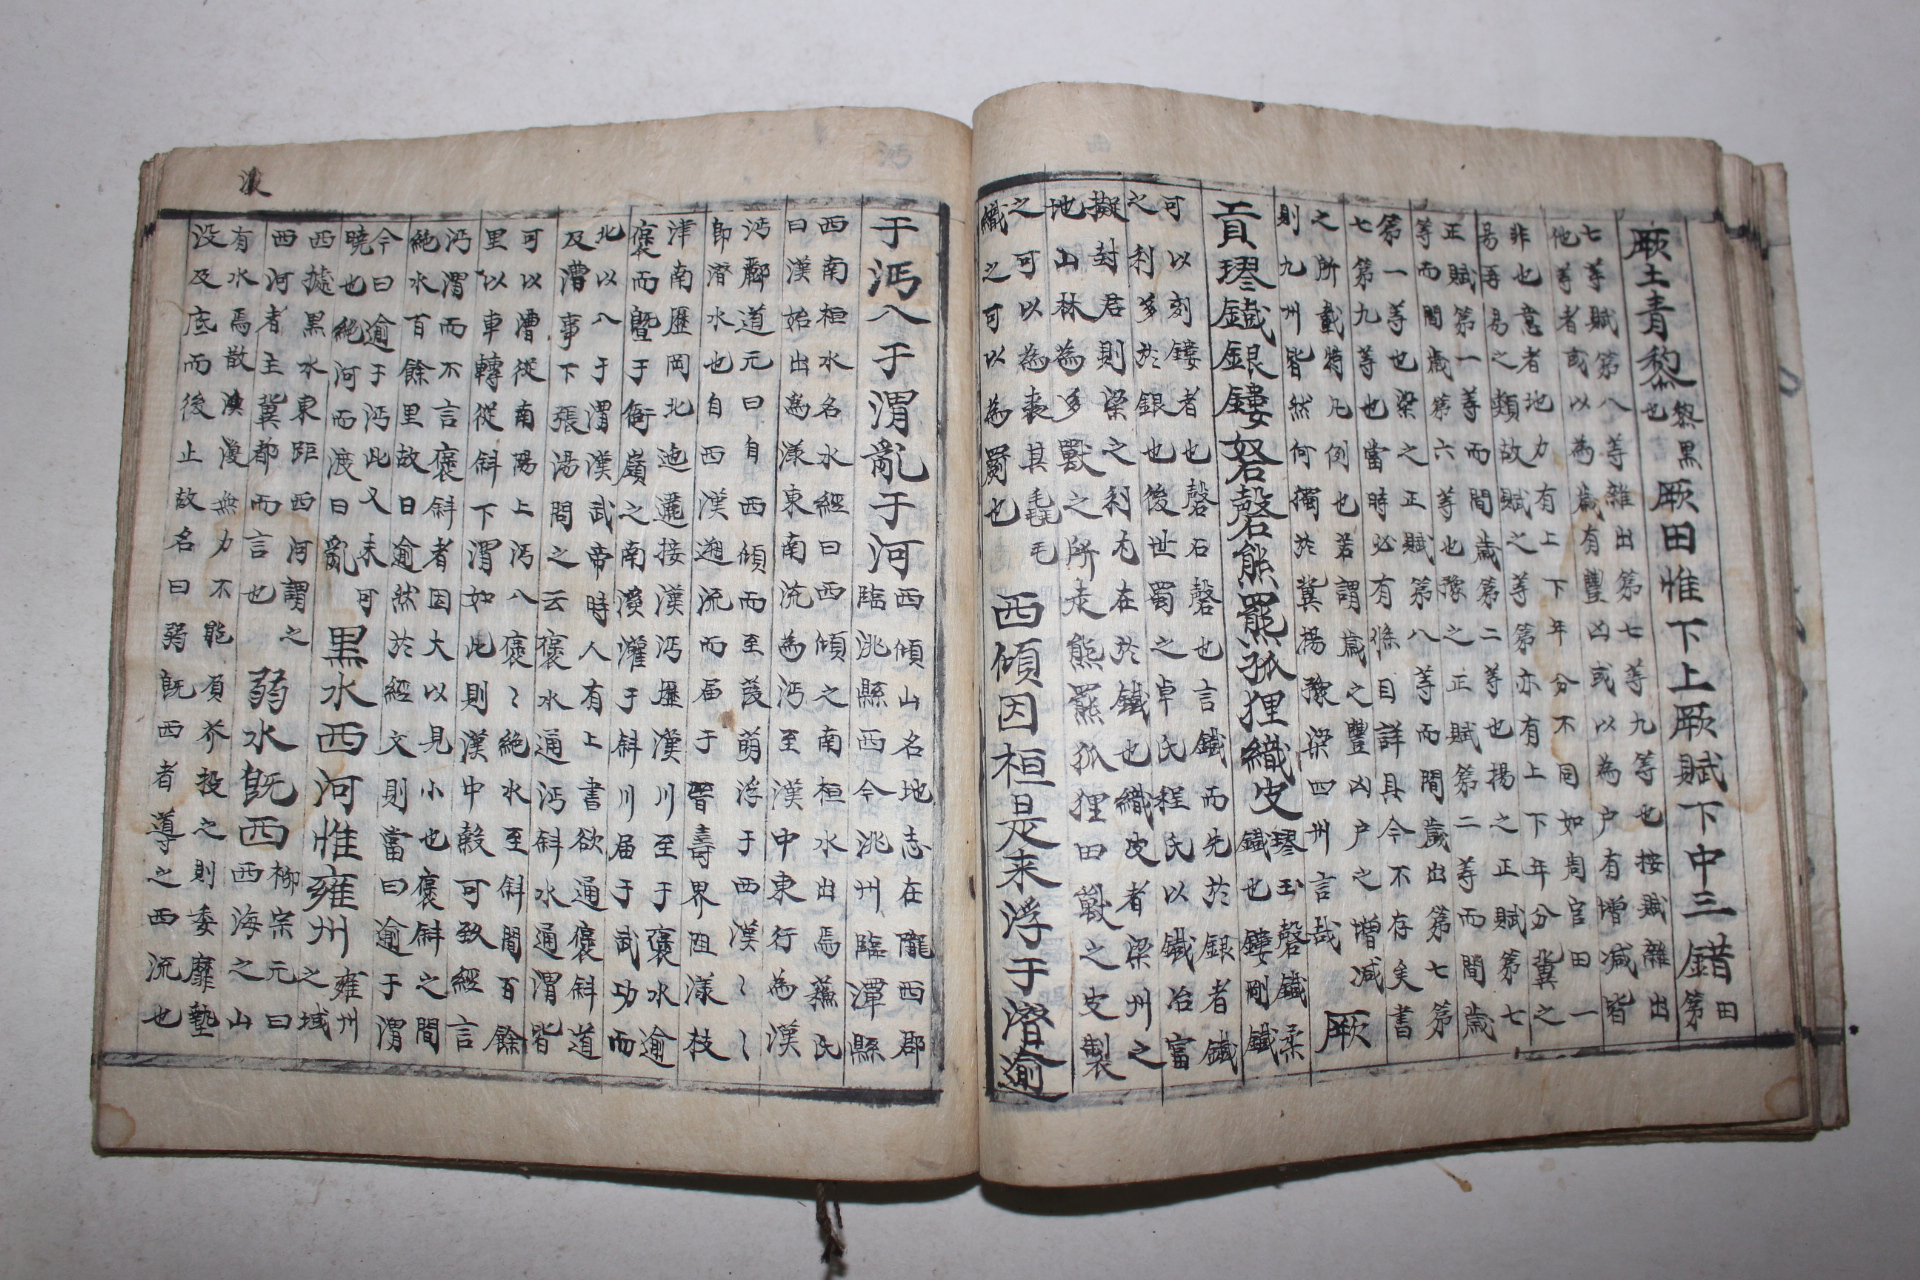 厥土青黎
黎黑
也
厥田惟下上厥賦下中三錯
田
第
七等賦第八等雜出第七等九等也按賦雜出
他等者或以為歲有豐凶或以為户有增減皆
非也意者地力有上下年分不同如周官田一
易再易之類故賦之等第亦有上下年分冀之
正賦第一等而間歲第二等也揚之正賦第七
等而間歲第六等也豫之正賦第二等而間歲
第一等也梁之正賦第八等而間歲出第七第
七第九等也當時必有條目詳具今不存矣書
之所載特凡例也若謂歲之豐凶户之增減
則九州皆然何獨於冀揚豫梁四州言哉
厥
貢璆鐵銀鏤砮磬熊羆狐狸織皮
璆玉磬鐵柔
鐵也鏤剛鐵
可以刻鏤者也磬石磬也言鐵而先於銀者鐵
之利多於銀也後世蜀之卓氏程氏以鐵冶富
擬封君則梁之利尤在於鐵也織皮者梁州之
地山林為多獸之所走熊羆狐狸四獸之皮製
之可以為裘其毳毛
織之可以為罽也
西傾因桓是来浮于潛逾
于沔入于渭亂于河
西傾山名地志在隴西郡
臨洮縣西今洮州臨潭縣
西南桓水名水經曰西傾之南桓水出焉蘇氏
曰漢始出為漾東南流為沔至漢中東行為漢
沔酈道元曰自西傾而至葭萌浮于西漢〻〻
即潛水也自西漢遡流而屆于晉壽界阻漾枝
津南歷岡北迆邐接漢沔歷漢川至于褒水逾
褒而曁于衙嶺之南溪灌于斜川屆于武功而
北以入于渭漢武帝時人有上書欲通褒斜道
及漕事下張湯問之云褒水通沔斜水通渭皆
可以漕從南陽上沔入褒〻絶水至斜間百餘
里以車轉從斜下渭如此則漢中穀可致經言
沔渭而不言褒斜者因大以見小也褒斜之間
絶水百餘里故曰逾然於經文則當曰逾于渭
今曰逾于沔此又未可
曉也絶河而渡曰亂
黒水西河惟雍州
雍州
之域
西據黒水東距西河謂之
西河者主冀都而言也
弱水既西
柳宗元曰
西海之山
有水焉散渙漫無力不能負芥投之則委靡墊
没及底而後止故名曰弱既西者導之西流也